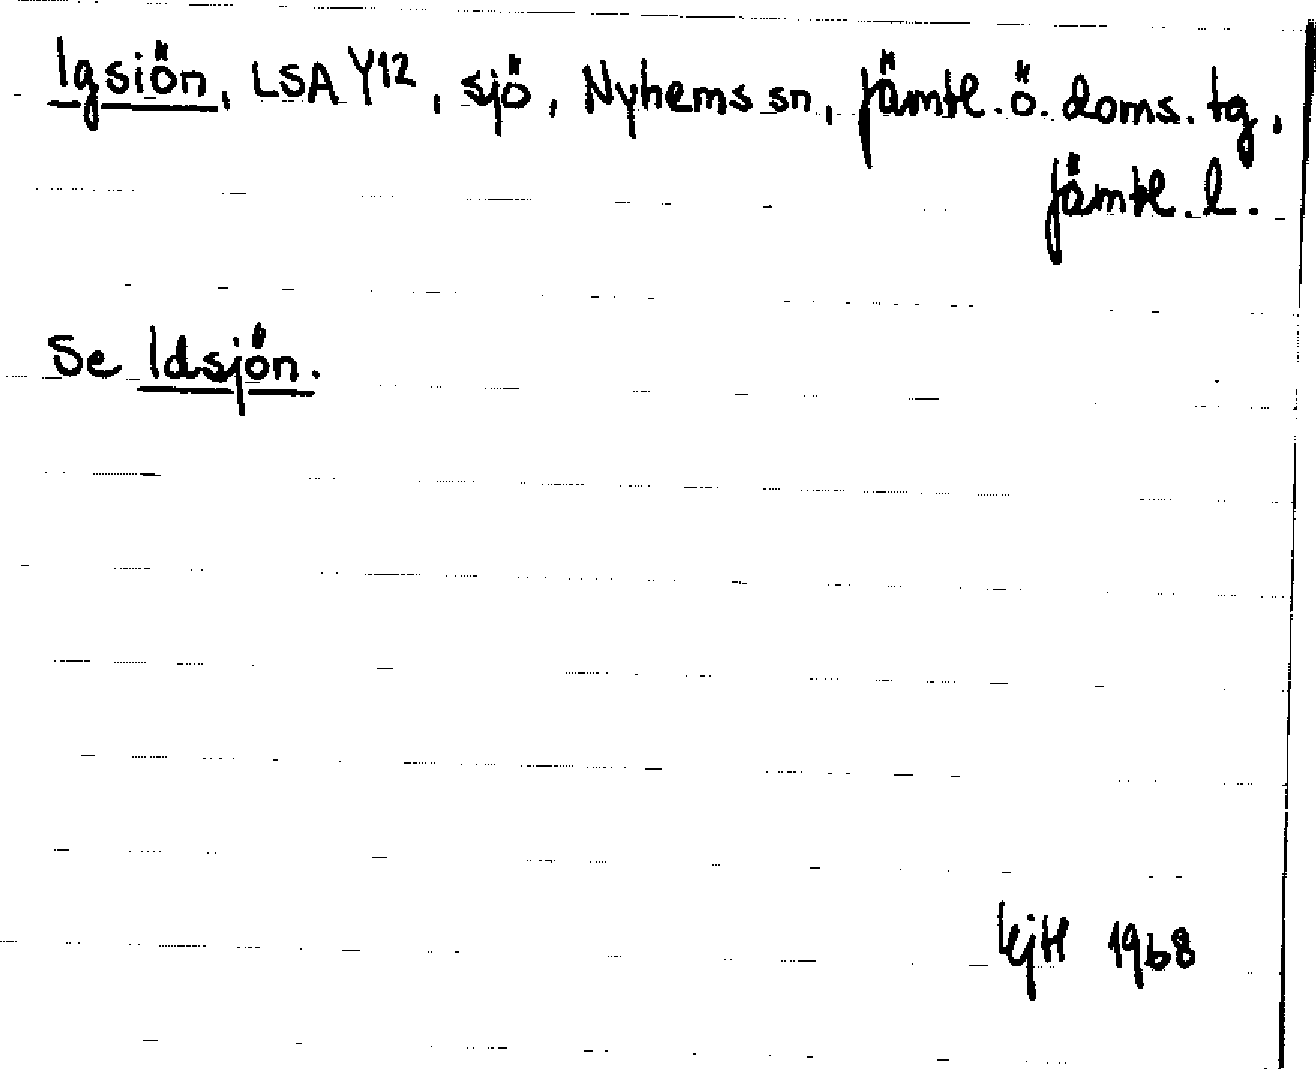 Igsiön, LSA Y12, sjö, Nyhems sn, Jämtl. ö. doms. tg,
Jämtl. l.
Se Idsjön.
1968